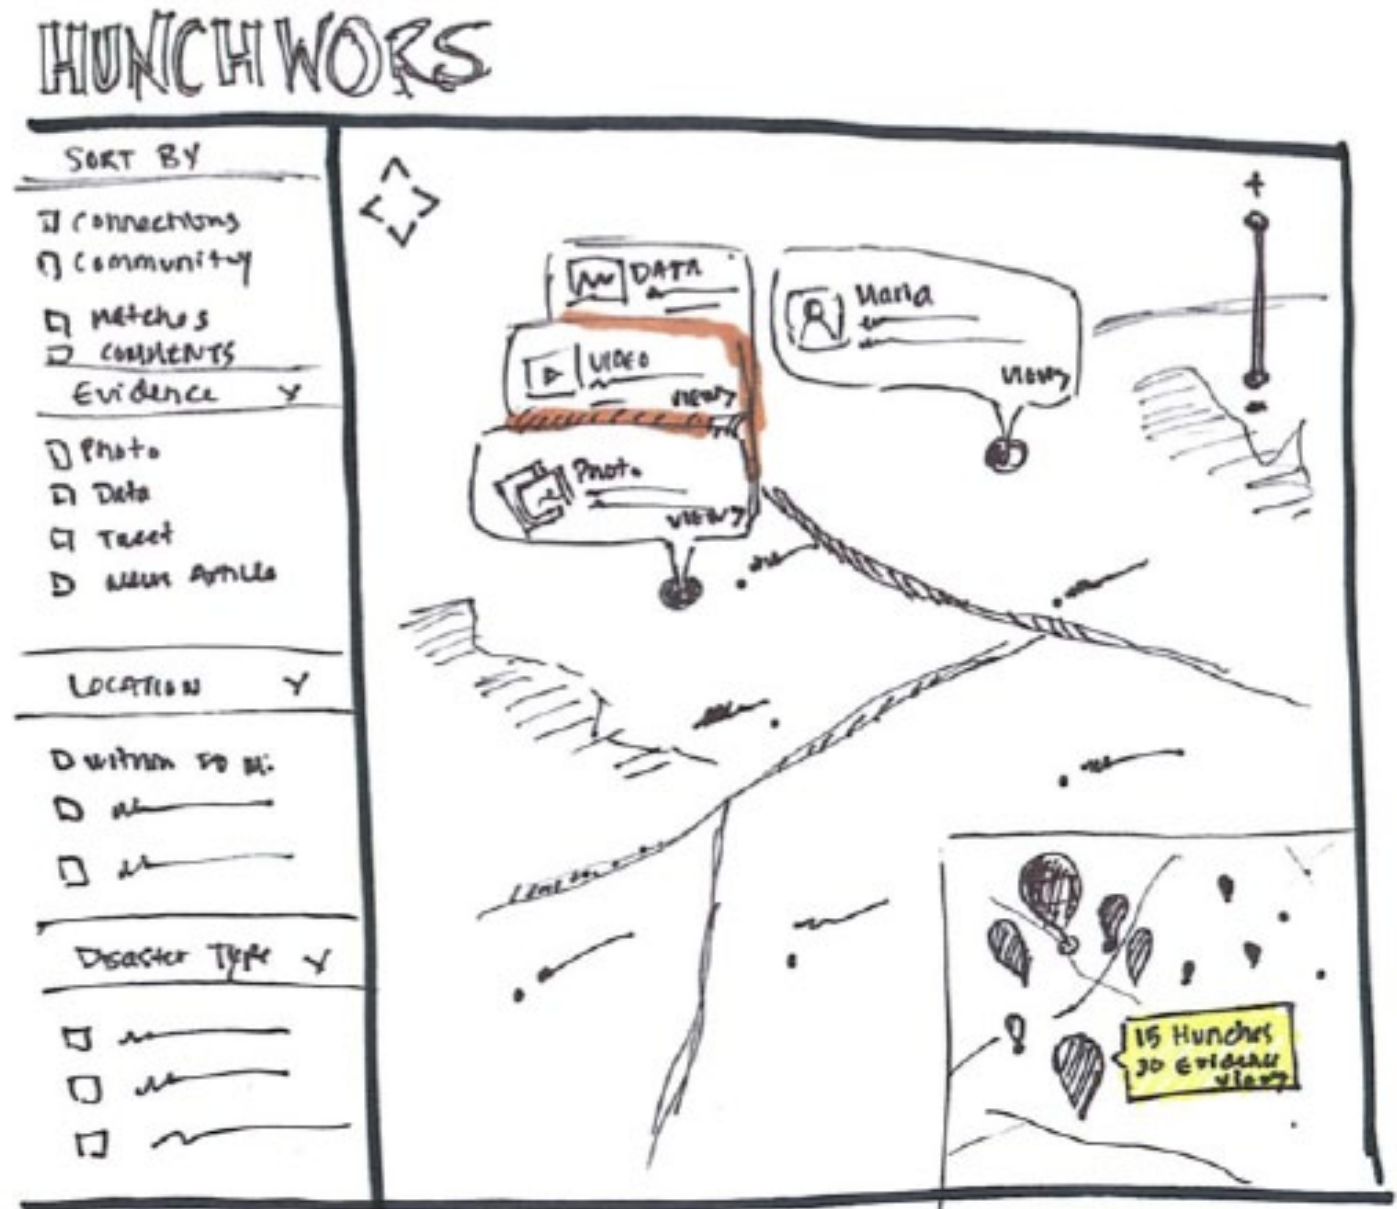 HUNCHWORS
SORT BY
Connections
Community
Matches
COMMENTS
Evidence
Photo
Data
Tweet
News Article
LOCATION
within 50 mi
Disaster Type
DATA
VIDEO
VIEW
Photo
VIEW
Maria
VIEW
+
-
15 Hunches
30 Evidence
View